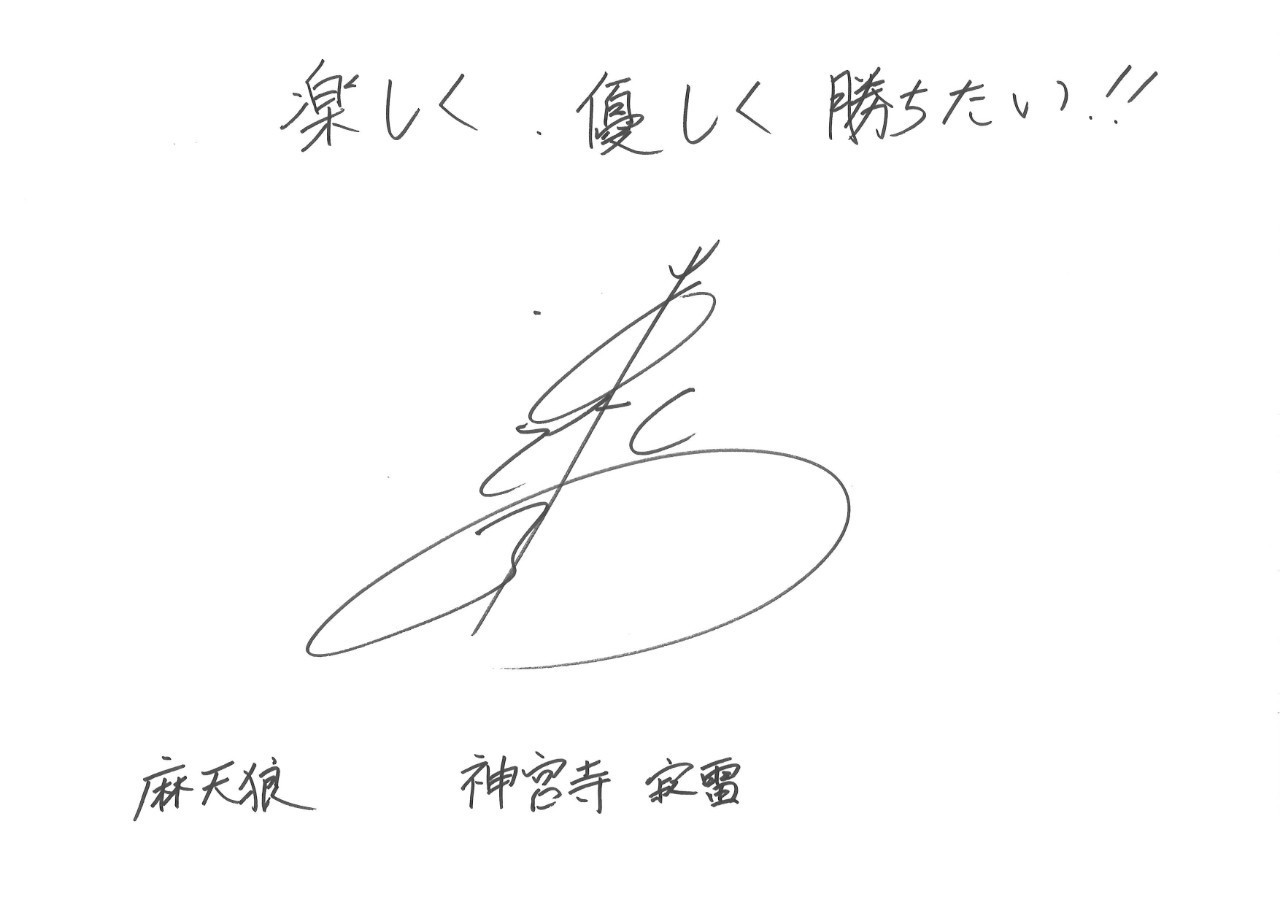 楽しく、優しく 勝ちたい!!
麻天狼 神宮寺 寂雷